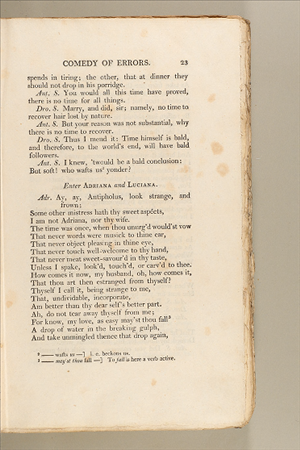 COMEDY OF ERRORS. 23
spends in tiring; the other, that at dinner they
should not drop in his porridge.
Ant. S. You would all this time have proved,
there is no time for all things.
Dro. S. Marry, and did, sir; namely, no time to
recover hair lost by nature.
Ant. S. But your reason was not substantial, why
there is no time to recover.
Dro. S. Thus I mend it: Time himself is bald,
and therefore, to the world's end, will have bald
followers.
Ant. S. I knew, 'twould be a bald conclusion:
But soft! who wafts us² yonder?
Enter ADRIANA and LUCIANA.
Adr. Ay, ay, Antipholus, look strange, and
frown;
Some other mistress hath thy sweet aspécts,
I am not Adriana, nor thy wife.
The time was once, when thou unurg'd would'st vow
That never words were musick to thine ear,
That never object pleasing in thine eye,
That never touch well-welcome to thy hand,
That never meat sweet-savour'd in thy taste,
Unless I spake, look'd, touch'd, or carv'd to thee.
How comes it now, my husband, oh, how comes it,
That thou art then estranged from thyself?
Thyself I call it, being strange to me,
That, undividable, incorporate,
Am better than thy dear self's better part.
Ah, do not tear away thyself from me;
For know, my love, as easy may'st thou fall³
A drop of water in the breaking gulph,
And take unmingled thence that drop again,
² —— wafts us —] i. e. beckons us.
³ —— may'st thou fall —] To fall is here a verb active.